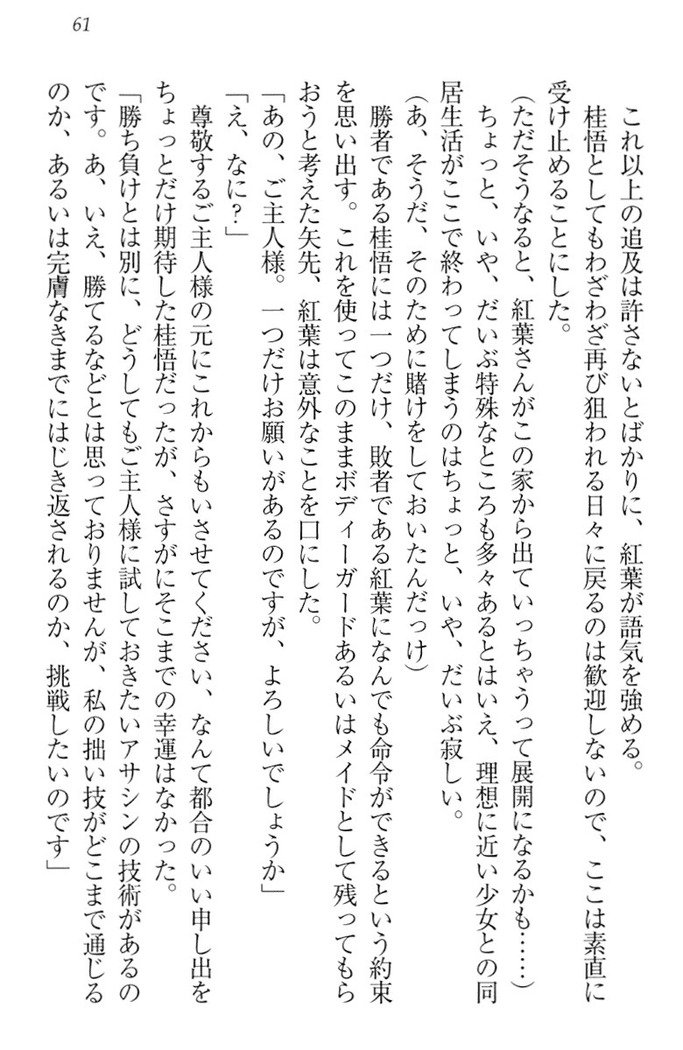 61
これ以上の追及は許さないとばかりに、紅葉が語気を強める。
桂悟としてもわざわざ再び狙われる日々に戻るのは歓迎しないので、ここは素直に
受け止めることにした。
(ただそうなると、紅葉さんがこの家から出ていっちゃうって展開になるかも……)
ちょっと、いや、だいぶ特殊なところも多々あるとはいえ、理想に近い少女との同
居生活がここで終わってしまうのはちょっと、いや、だいぶ寂しい。
(あ、そうだ、そのために賭けをしておいたんだっけ)
勝者である桂悟には一つだけ、敗者である紅葉になんでも命令ができるという約束
を思い出す。これを使ってこのままボディーガードあるいはメイドとして残ってもら
おうと考えた矢先、紅葉は意外なことを口にした。
「あの、ご主人様。一つだけお願いがあるのですが、よろしいでしょうか」
「え、なに?」
尊敬するご主人様の元にこれからもいさせてください、なんて都合のいい申し出を
ちょっとだけ期待した桂悟だったが、さすがにそこまでの幸運はなかった。
「勝ち負けとは別に、どうしてもご主人様に試しておきたいアサシンの技術があるの
です。あ、いえ、勝てるなどとは思っておりませんが、私の拙い技がどこまで通じる
のか、あるいは完膚なきまでにはじき返されるのか、挑戦したいのです」